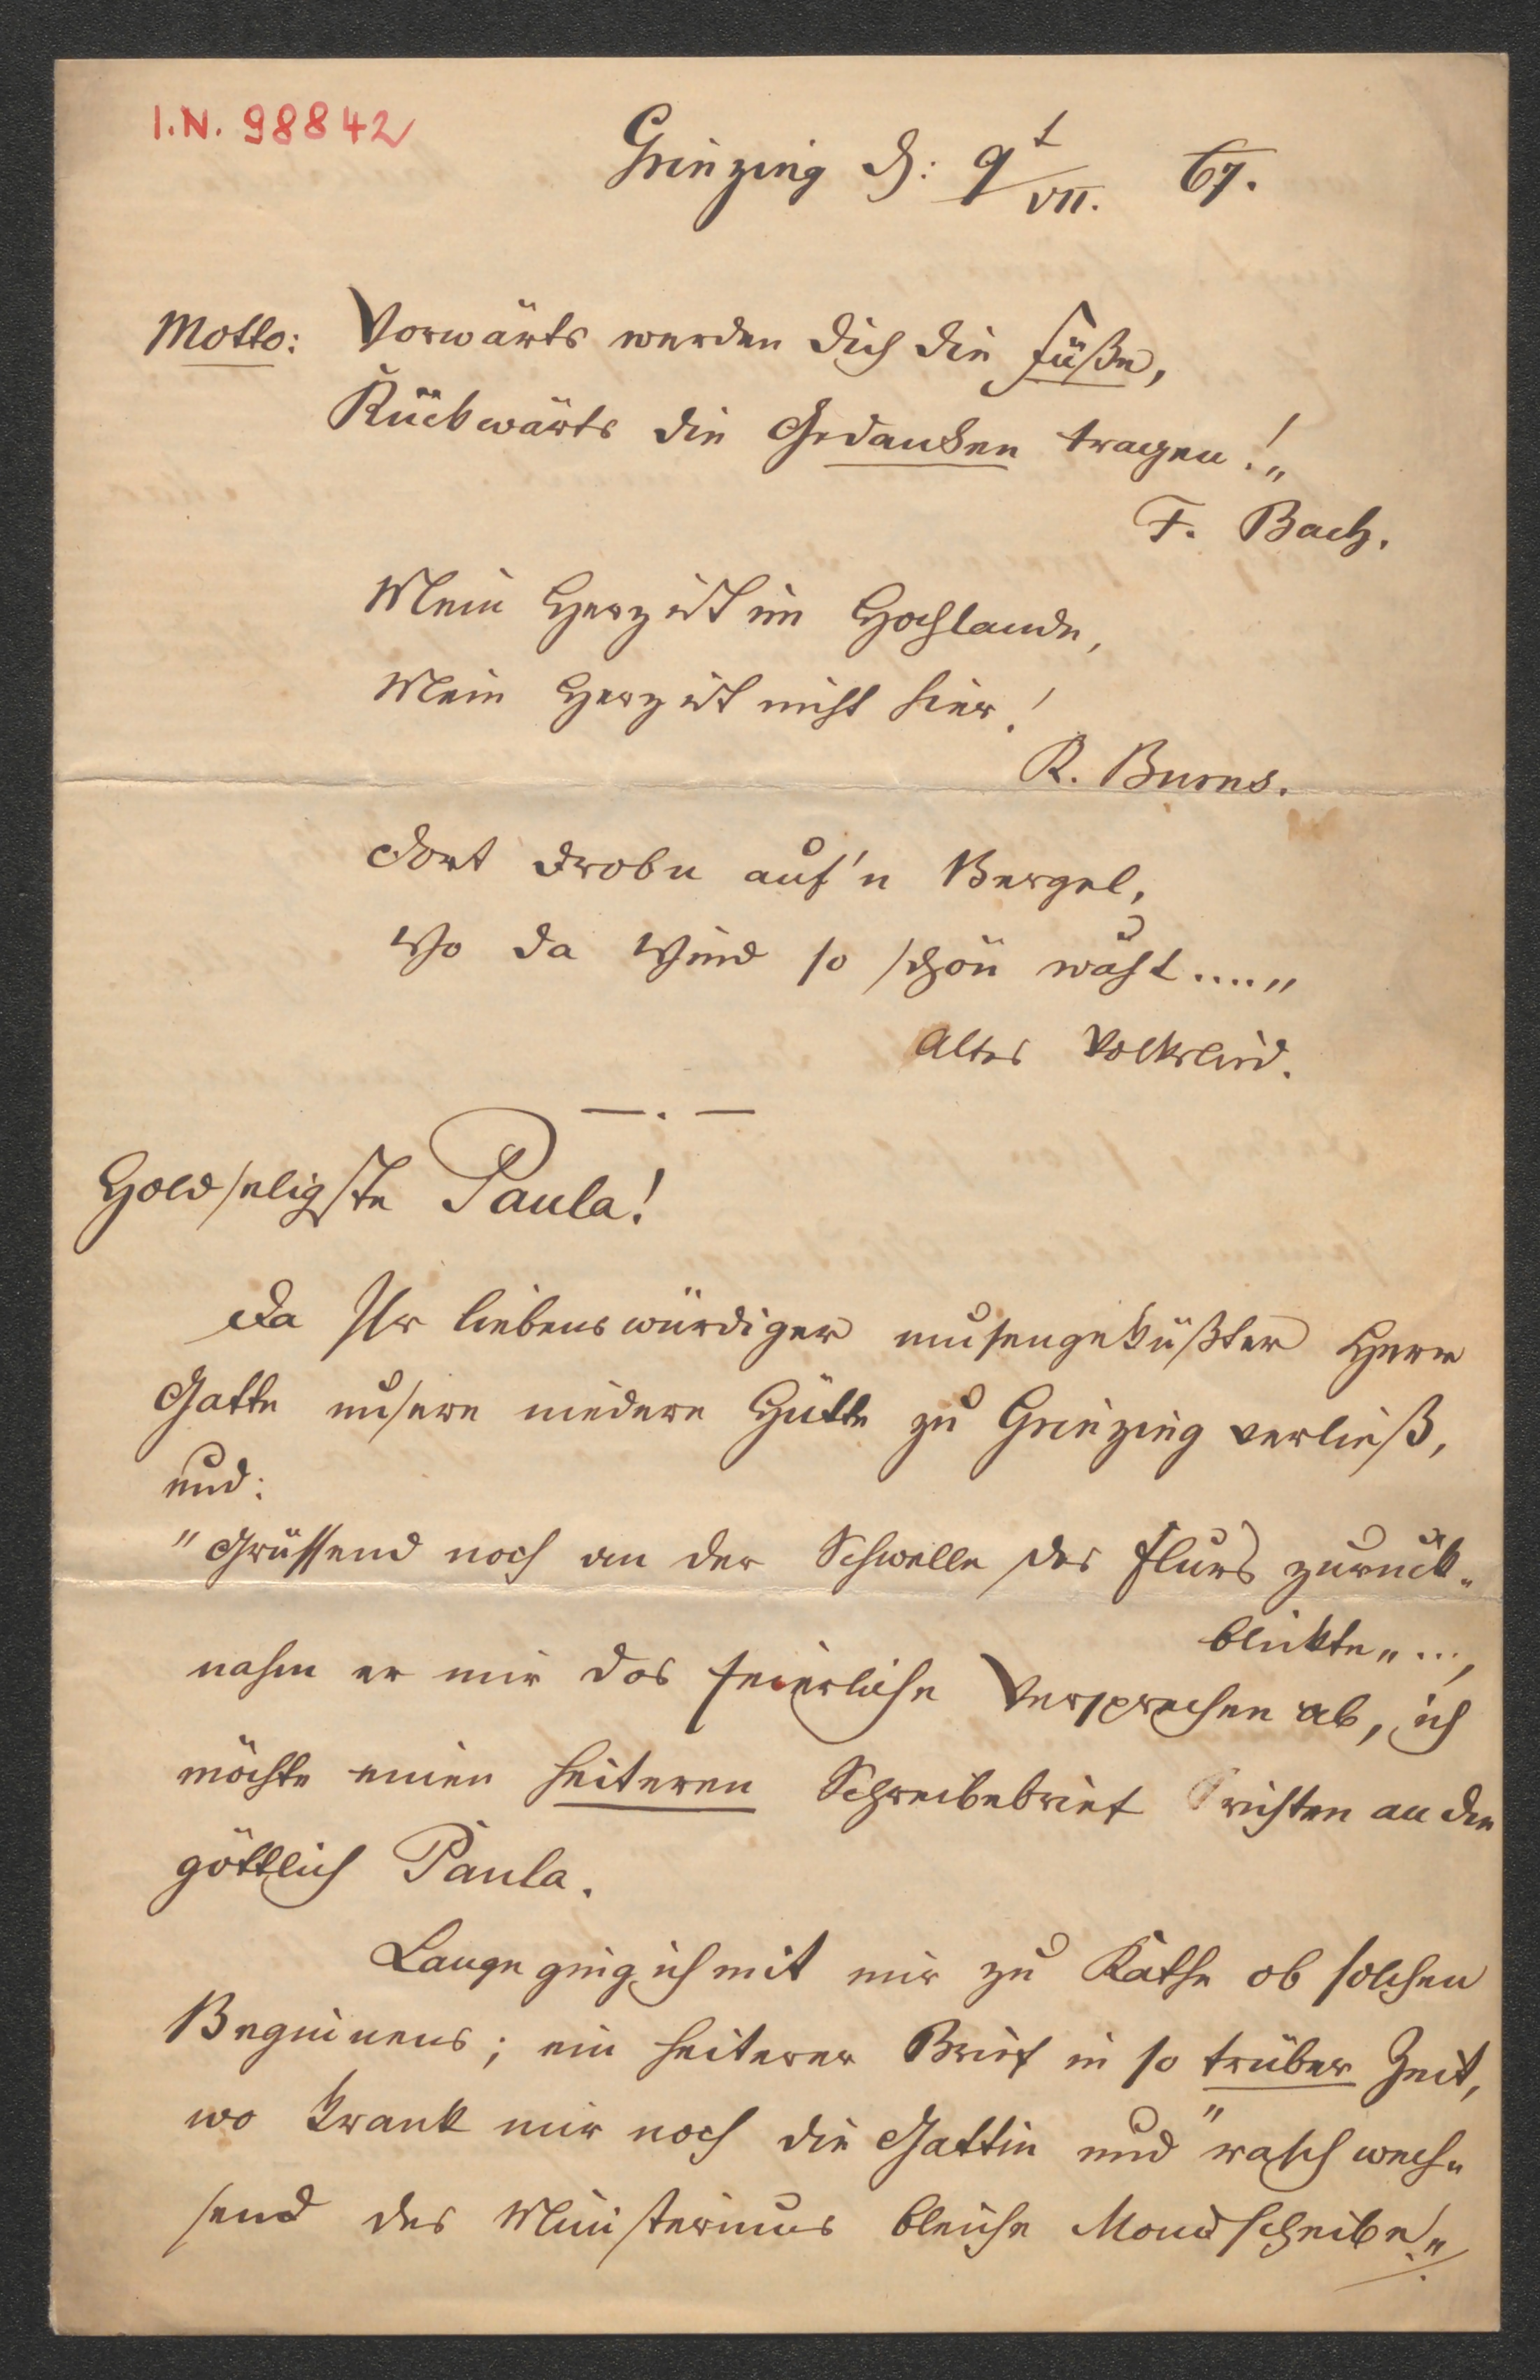 I.N. 98842
Grinzing d: 9t/VII. 67.
Motto: Vorwärts werden dich die Füße,
Rückwärts die Gedanken tragen!"
F. Bach.
Mein Herz ist im Hochlande,
Mein Herz ist nicht hier!
R. Burns.
Dort drobn auf'n Bergel,
Wo da Wind so schön wäht...."
Altes Volkslied.
—.—
Holdseligste Paula!
Da Ihr liebenswürdiger musengeküßter Herr
Gatte unsere niedere Hütte zu Grinzing verließ,
und:
"Grüssend noch an der Schwelle des Flurs zurück-
blickte"...,
nahm er mir das feierliche Versprechen ab, ich
möchte einen heiteren Schreibebrief richten an die
göttlich Paula.
Lange ging ich mit mir zu Rathe ob solchen
Beginnens; ein heiterer Brief in so trüber Zeit,
wo krank mir noch die Gattin und "rasch wech-
send des Ministeriums bleiche Mondscheibe!"